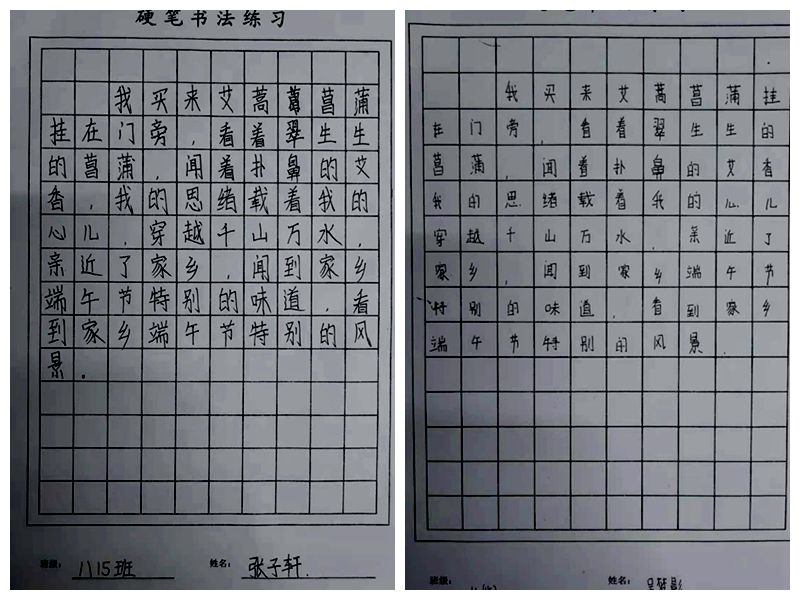 硬笔书法练习
我买来艾蒿菖菖蒲
挂在门旁，看着翠生生
的菖蒲，闻着扑鼻的艾
香，我的思绪载着我的
心儿，穿越千山万水，
亲近了家乡，闻到家乡
端午节特别的味道，看
到家乡端午节特别的风
景.
班级： 八15班 姓名： 张子轩
我买来艾蒿菖蒲挂
在门旁，看着翠生生的
菖蒲，闻着扑鼻的艾香
我的思绪载着我的心儿
穿越千山万水，亲近了
家乡，闻到家乡端午节
特别的味道，看到家乡
端午节特别的风景.
班级： 姓名：